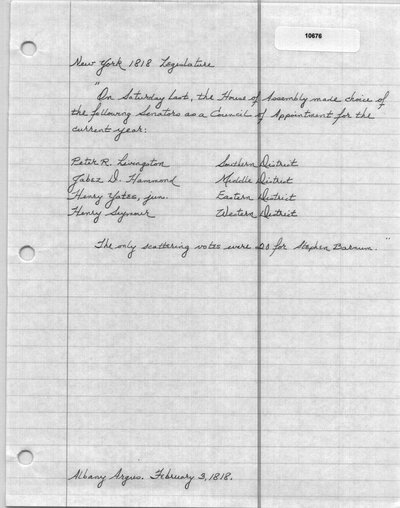 10676
New York 1818 Legislature
"On Saturday last, the House of Assembly made choice of
the following Senators as a Council of Appointment for the
current year:
Peter R. Livingston Southern District
Jabez D. Hammond Middle District
Henry Yates, jun. Eastern District
Henry Seymour Western District
The only scattering votes were 20 for Stephen Barnum."
Albany Argus. February 3, 1818.